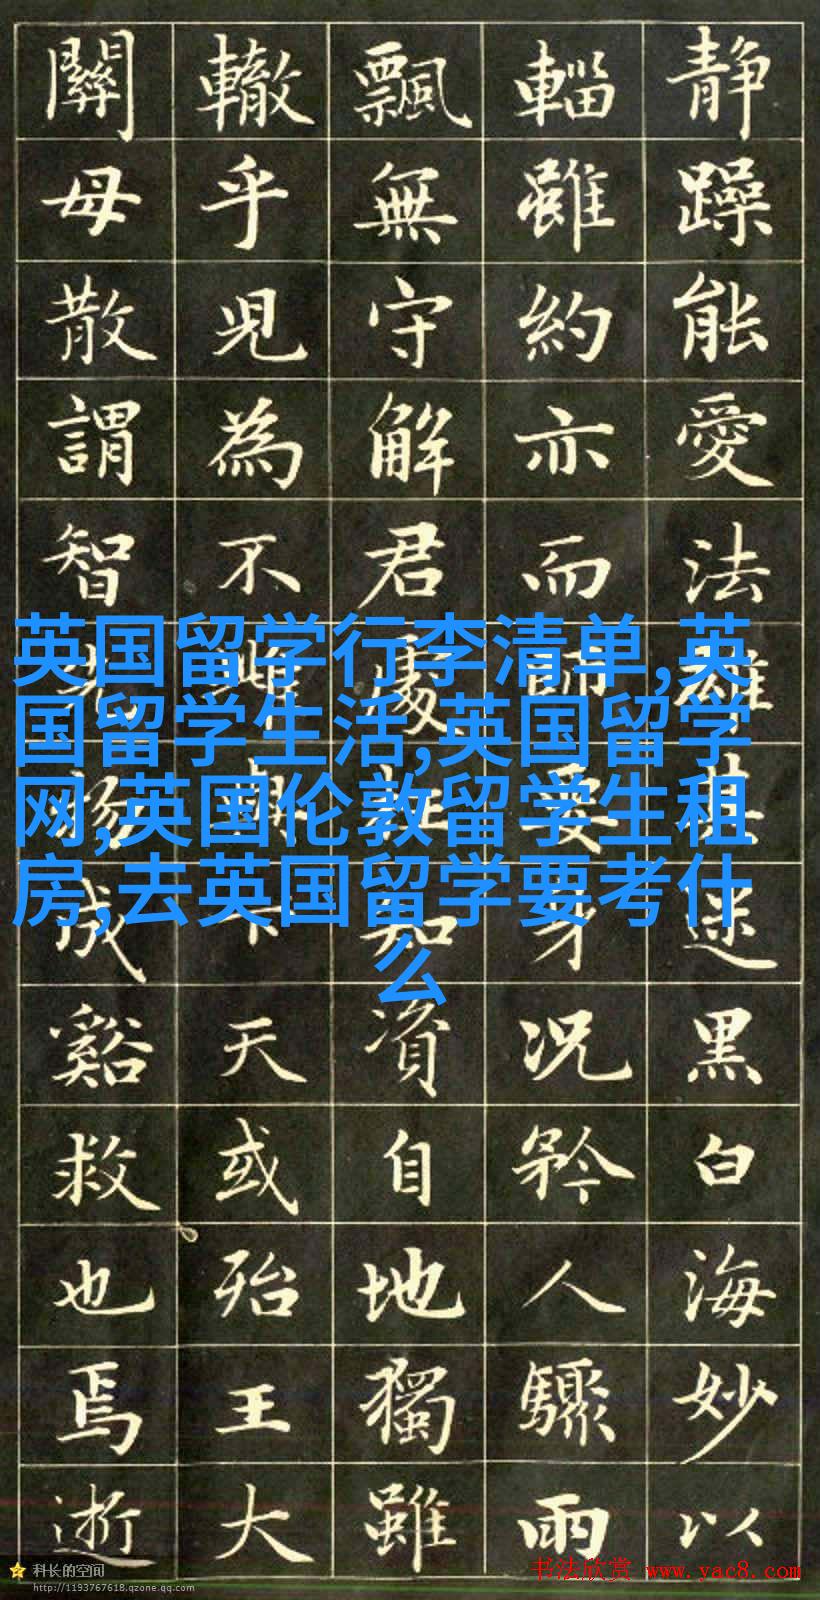 静躁能愛法雄黑白海妙以
輜雖約亦而師受身況矜人驟雨
飄無守解君處知資自地獨雖
轍乎見為不天或殆王大
關毋散謂智成谿救也焉逝
英国留学行李清单,英
国留学生活,英国留学
网,英国伦敦留学生租
房,去英国留学要考什
么
科长的空间
http://1193767618.qzone.qq.com
书法欣赏 www.yac8.com